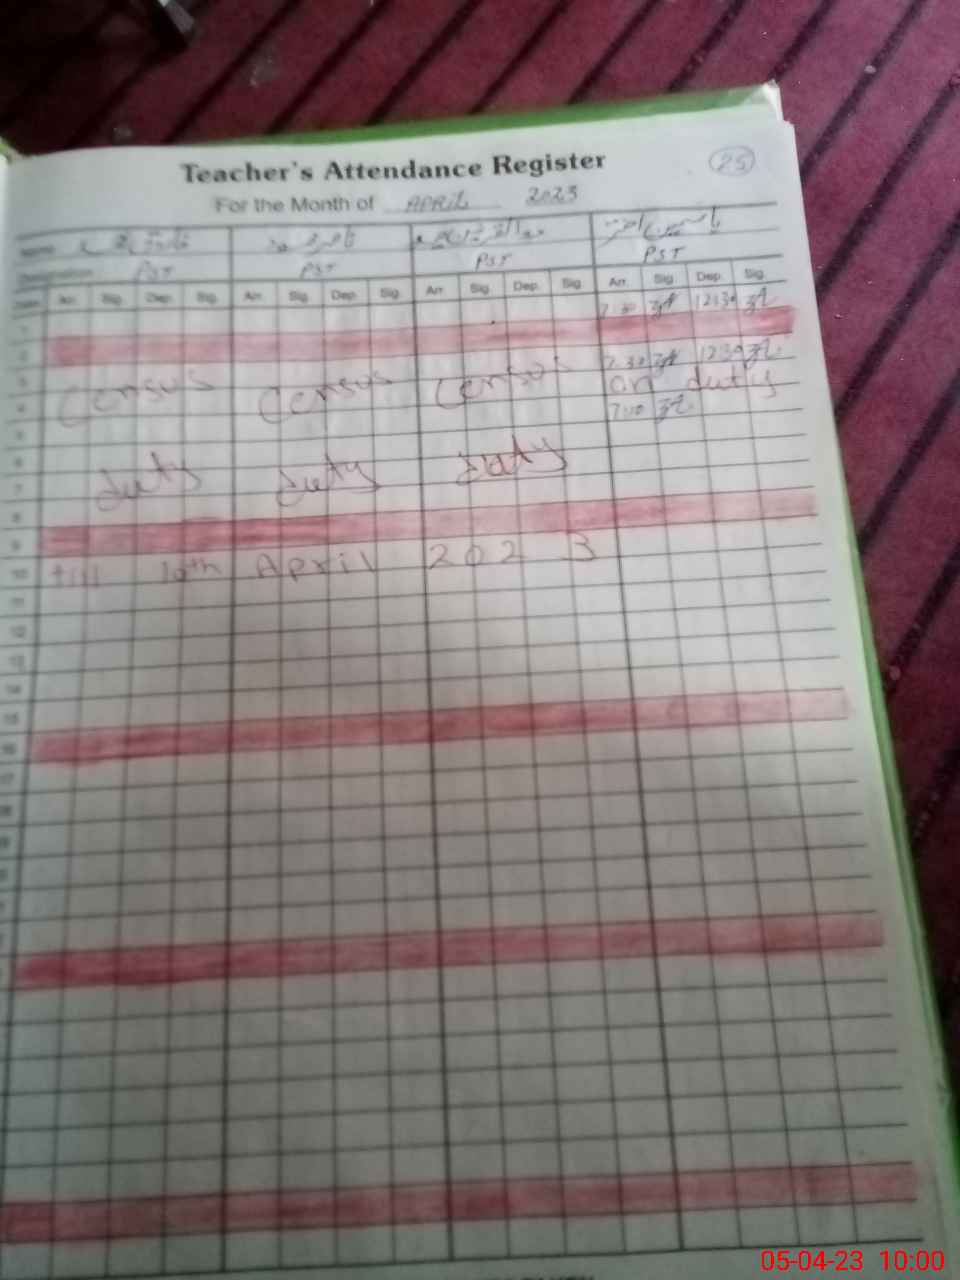 Teacher's Attendance Register
25
For the Month of APRIL 2023
Name
Designation PST PST PST PST
Date Arr. Sig. Dep. Sig. Arr. Sig. Dep. Sig. Arr. Sig. Dep. Sig. Arr. Sig. Dep. Sig.
1 7:30 12:30
2
3 7:30 12:30
Census Census Census on duty
4
5 7:10
6
duty duty duty
7
8
9
10 till 10th April 2023
11
12
13
14
15
16
17
05-04-23 10:00